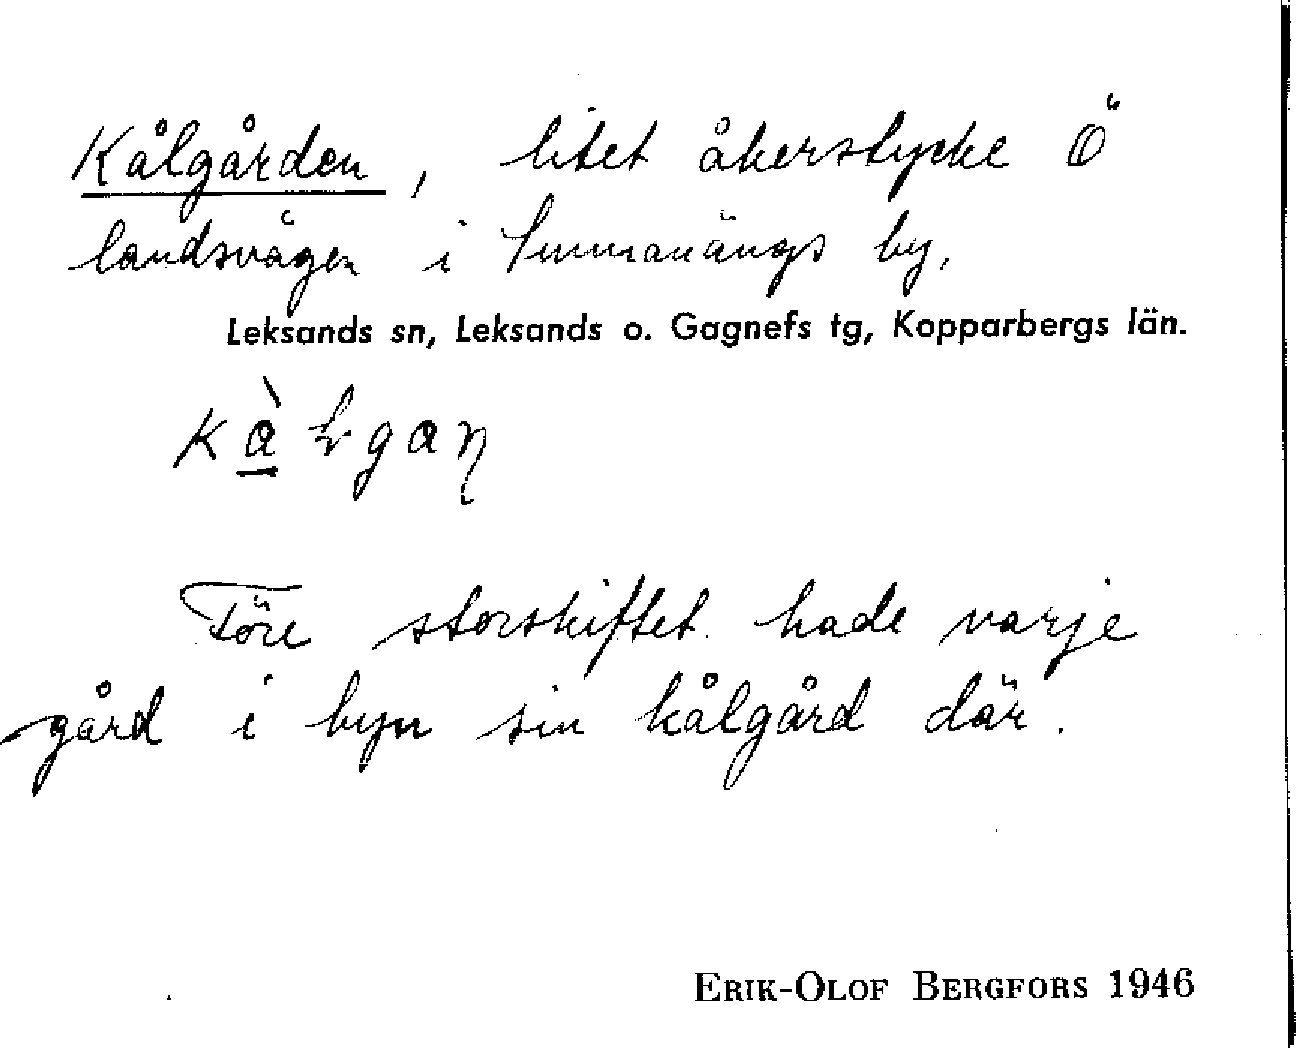 Kålgården, litet åkerstycke Ö
landsvägen i Sunnanängs by.
Leksands sn, Leksands o. Gagnefs tg, Kopparbergs län.
Före storskiftet hade varje
gård i byn sin kålgård där.
ERIK-OLOF BERGFORS 1946